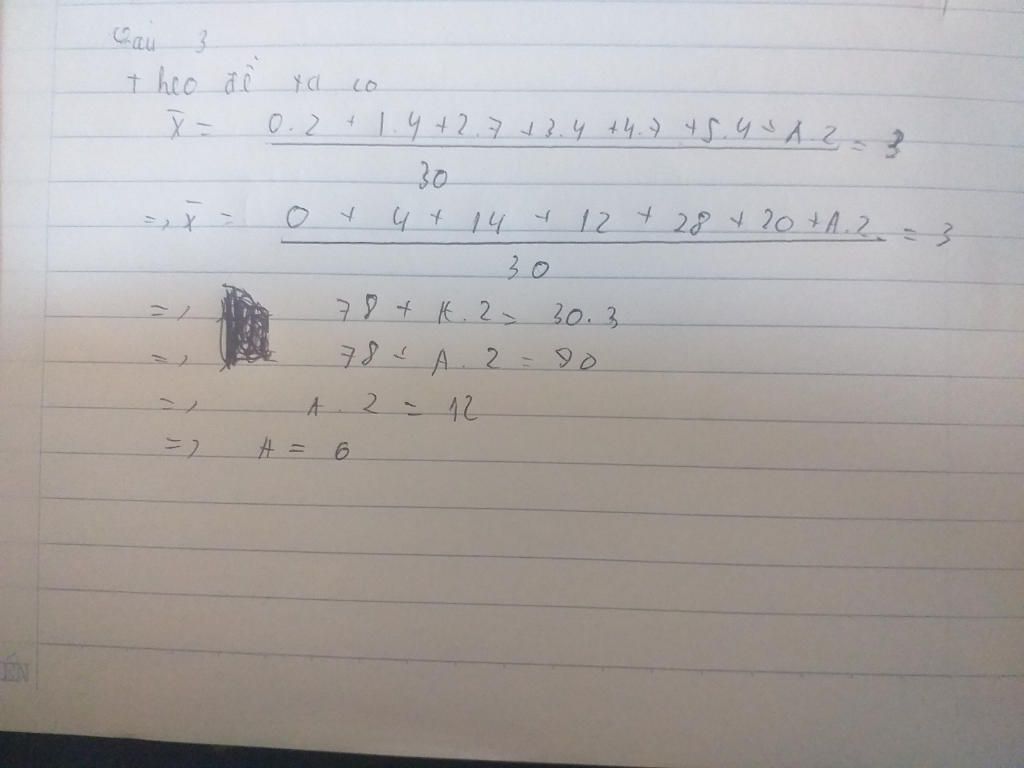 Câu 3
theo đề ta co
X̄ = 0.2 + 1.4 + 2.7 + 3.4 + 4.7 + 5.4 + A.2 = 3
30
=, X̄ = 0 + 4 + 14 + 12 + 28 + 20 + A.2. = 3
30
=, 78 + A.2 = 30.3
=, 78 + A.2 = 90
=, A.2 = 12
=, A = 6